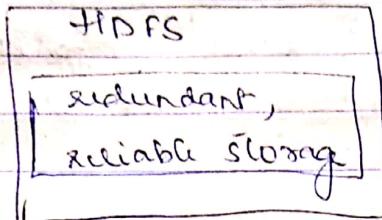 HDFS
redundant,
reliable storage